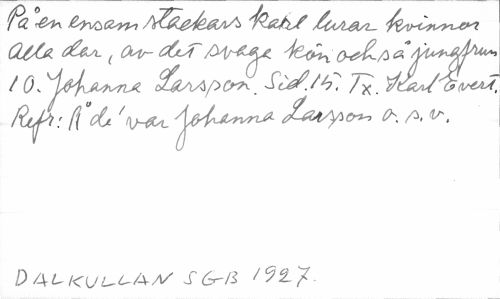 På en ensam stackars karl lurar kvinnor
alla dar, av det svaga kön och så jungfrun
10. Johanna Larsson. Sid. 15. Tx. Karl Evert.
Refr: Å de' var Johanna Larsson o. s. v.
DALKULLAN SGB 1927.